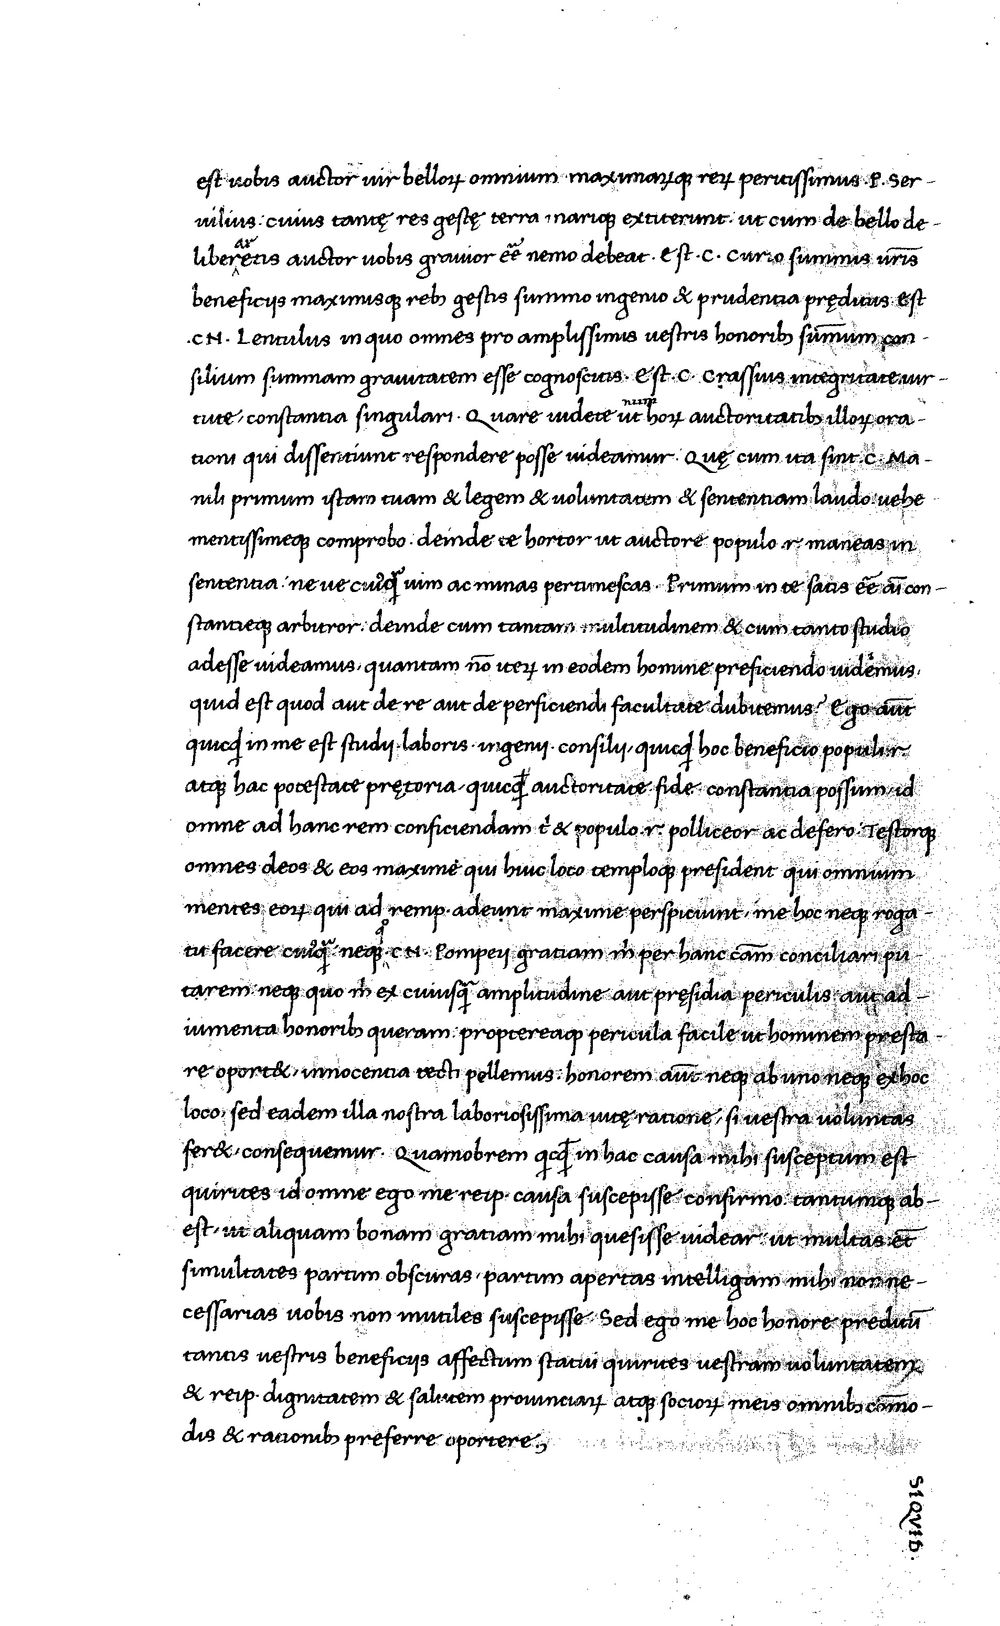 est uobis auctor uir belloꝝ omnium maximarꝝqꝫ reꝝ peritissimus .P. Ser-
uilius: cuius tantę res gestę terra marique extiterunt. ut cum de bello de-
liberetis auctor uobis grauior eē̄ nemo debeat. Est .C. Curio summis ur̄is
ar
beneficijs maximisqꝫ rebꝫ gestis summo ingenio & prudentia pręditus Est
.CN. Lentulus in quo omnes pro amplissimis uestris honoribꝫ sum̄um con-
silium summam grauitatem esse cognoscitis. Est .C. Crassius integritate uir-
tute, constantia singulari. Quare uidete ut hoꝝ auctoritatibꝫ illoꝝ ora-
tioni qui dissentiunt respondere posse uideamur. Quę cum ita sint .C. Ma-
nili primum istam tuam & legem & uoluntatem & sententiam laudo: uehe
mentissimeqꝫ comprobo. deinde te hortor ut auctore populo .r. maneas in
sententia. ne ue cuiusq̄ uim ac minas pertimescas. Primum in te satis eē̄ ai̅ con-
stantieqꝫ arbitror. deinde cum tantam multitudinem & cum tanto studio
adesse uideamus, quantam nō iteꝝ in eodem homine preficiendo uidemus,
quid est quod aut de re aut de perficiendi facultate dubitemus? Ego aut̄
quicq̇d in me est studij. laboris. ingenij. consilij, quicq̇d hoc beneficio populi .r.
atqꝫ hac potestate prętoria, quicq̇d auctoritate fide constantia possum, id
omne ad hanc rem conficiendam t̄ & populo .r. polliceor ac defero. Testorqꝫ
omnes deos & eos maxime qui huic loco temploqꝫ president qui omnium
mentes eoꝝ qui ad remp. adeunt maxime perspiciunt, me hoc neqꝫ roga-
tu facere cuiusq̄ neqꝫ q̊ .CN. Pompeij gratiam m̄ per hanc cām conciliari pu-
tarem neqꝫ quo m̄ ex cuiusq̄ amplitudine aut pręsidia periculis aut ad-
iumenta honoribꝫ queram. proptereaqꝫ pericula facile ut hominem presta-
re oport&, innocentia tecti pellemus. honorem aut̄ neqꝫ ab uno neqꝫ ex hoc
loco, sed eadem illa nostra laboriosissima uitę ratione, si uestra uoluntas
fer&, consequemur. Quamobrem q̇cq̇d in hac causa mihi susceptum est
quirites id omne ego me reip. causa suscepisse confirmo. tantumqꝫ ab-
est, ut aliquam bonam gratiam mihi quesisse uidear ut multas et̄
simultates partim obscuras, partim apertas intelligam mihi non ne-
cessarias uobis non inutiles suscepisse. Sed ego me hoc honore preditū
tantis uestris beneficijs affectum statui quirites uestram uoluntatem
& reip. dignitatem & salutem prouinciaꝝ atqꝫ socioꝝ meis omnibꝫ com̄o-
dis & rationibꝫ preferre oportere.
SIQVID.